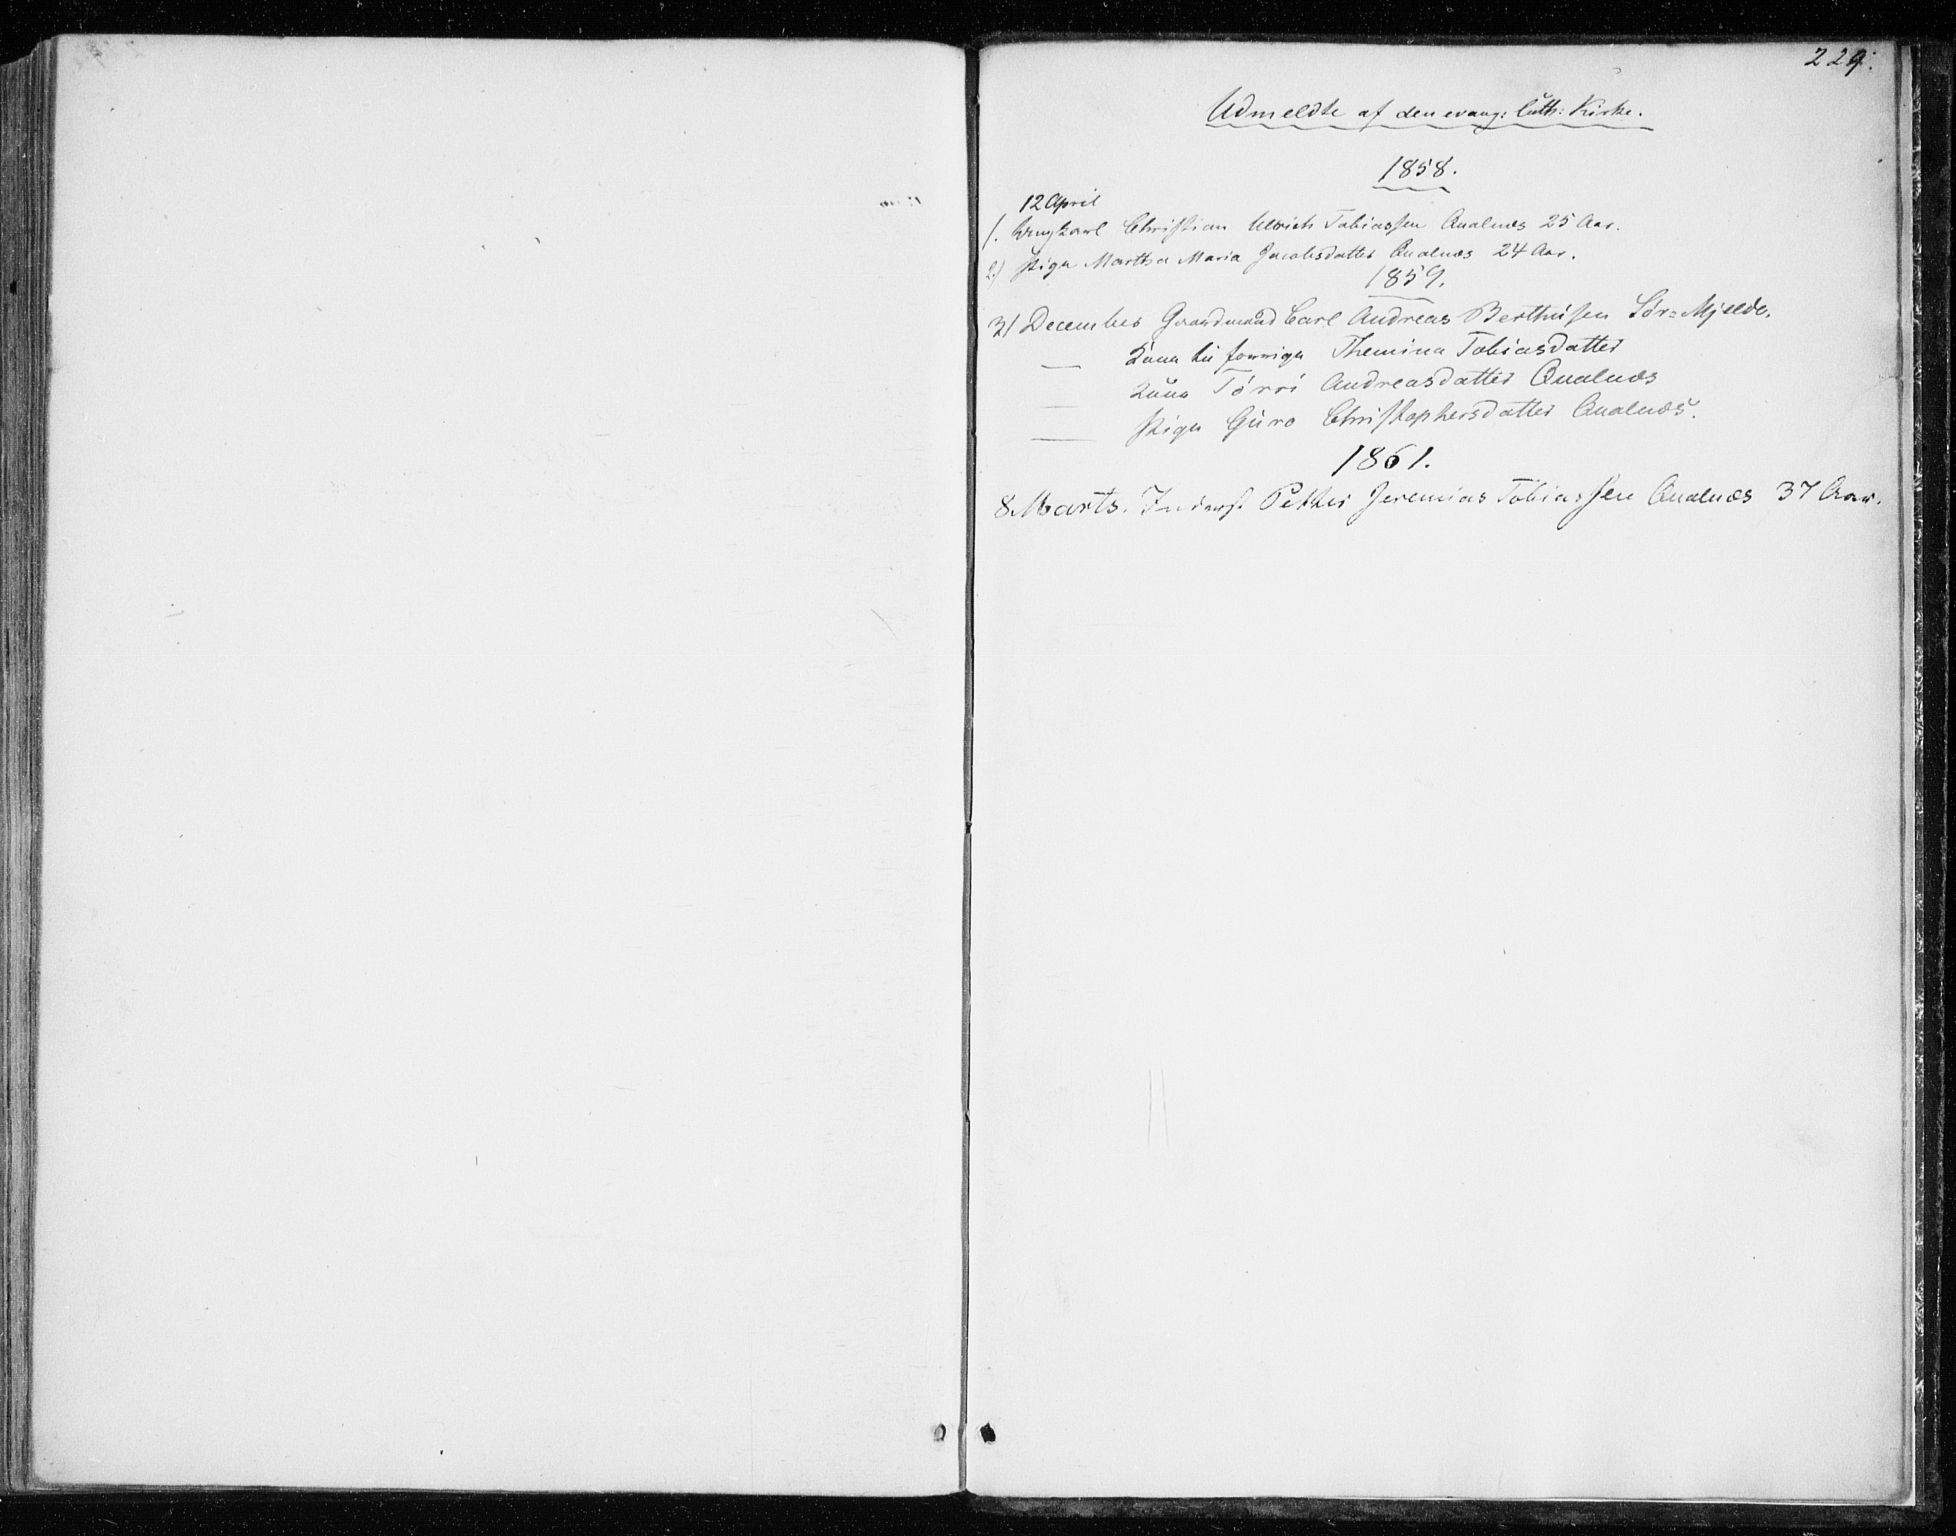 229.
Udmeldte af den evang: luth: Kirke.
1858.
12 April
1. Ungkarl Christian Ulrich Tobiassen Qvalnæs 25 Aar.
2.) Pige Martha Maria Jacobsdatter Qvalnæs 24 Aar.
1859.
31 December Gaardmand Carl Andreas Berthusen Sør-Mjelde.
— Kone til forrige Themina Tobiasdatter
— Kone Torri Andreasdatter Qvalnæs
— Pige Guro Christophersdatter Qvalnæs.
1861.
8 Marts. Inderst Petter Jeremias Tobiassen Qvalnæs 37 Aar.